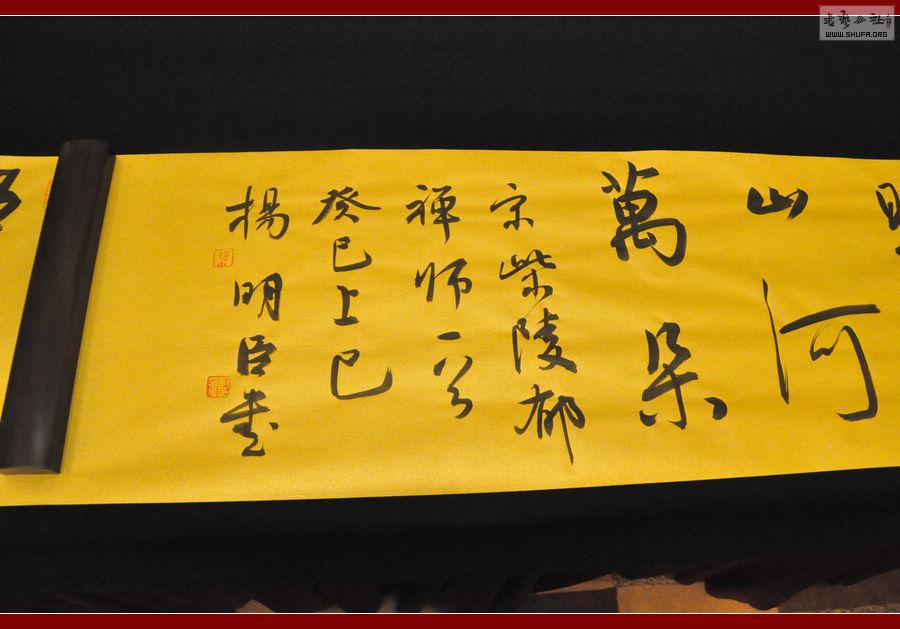 書藝公社
WWW.SHUFA.ORG
山河
萬朵
宋柴陵郁
禅师一
癸巳上巳
楊明臣書